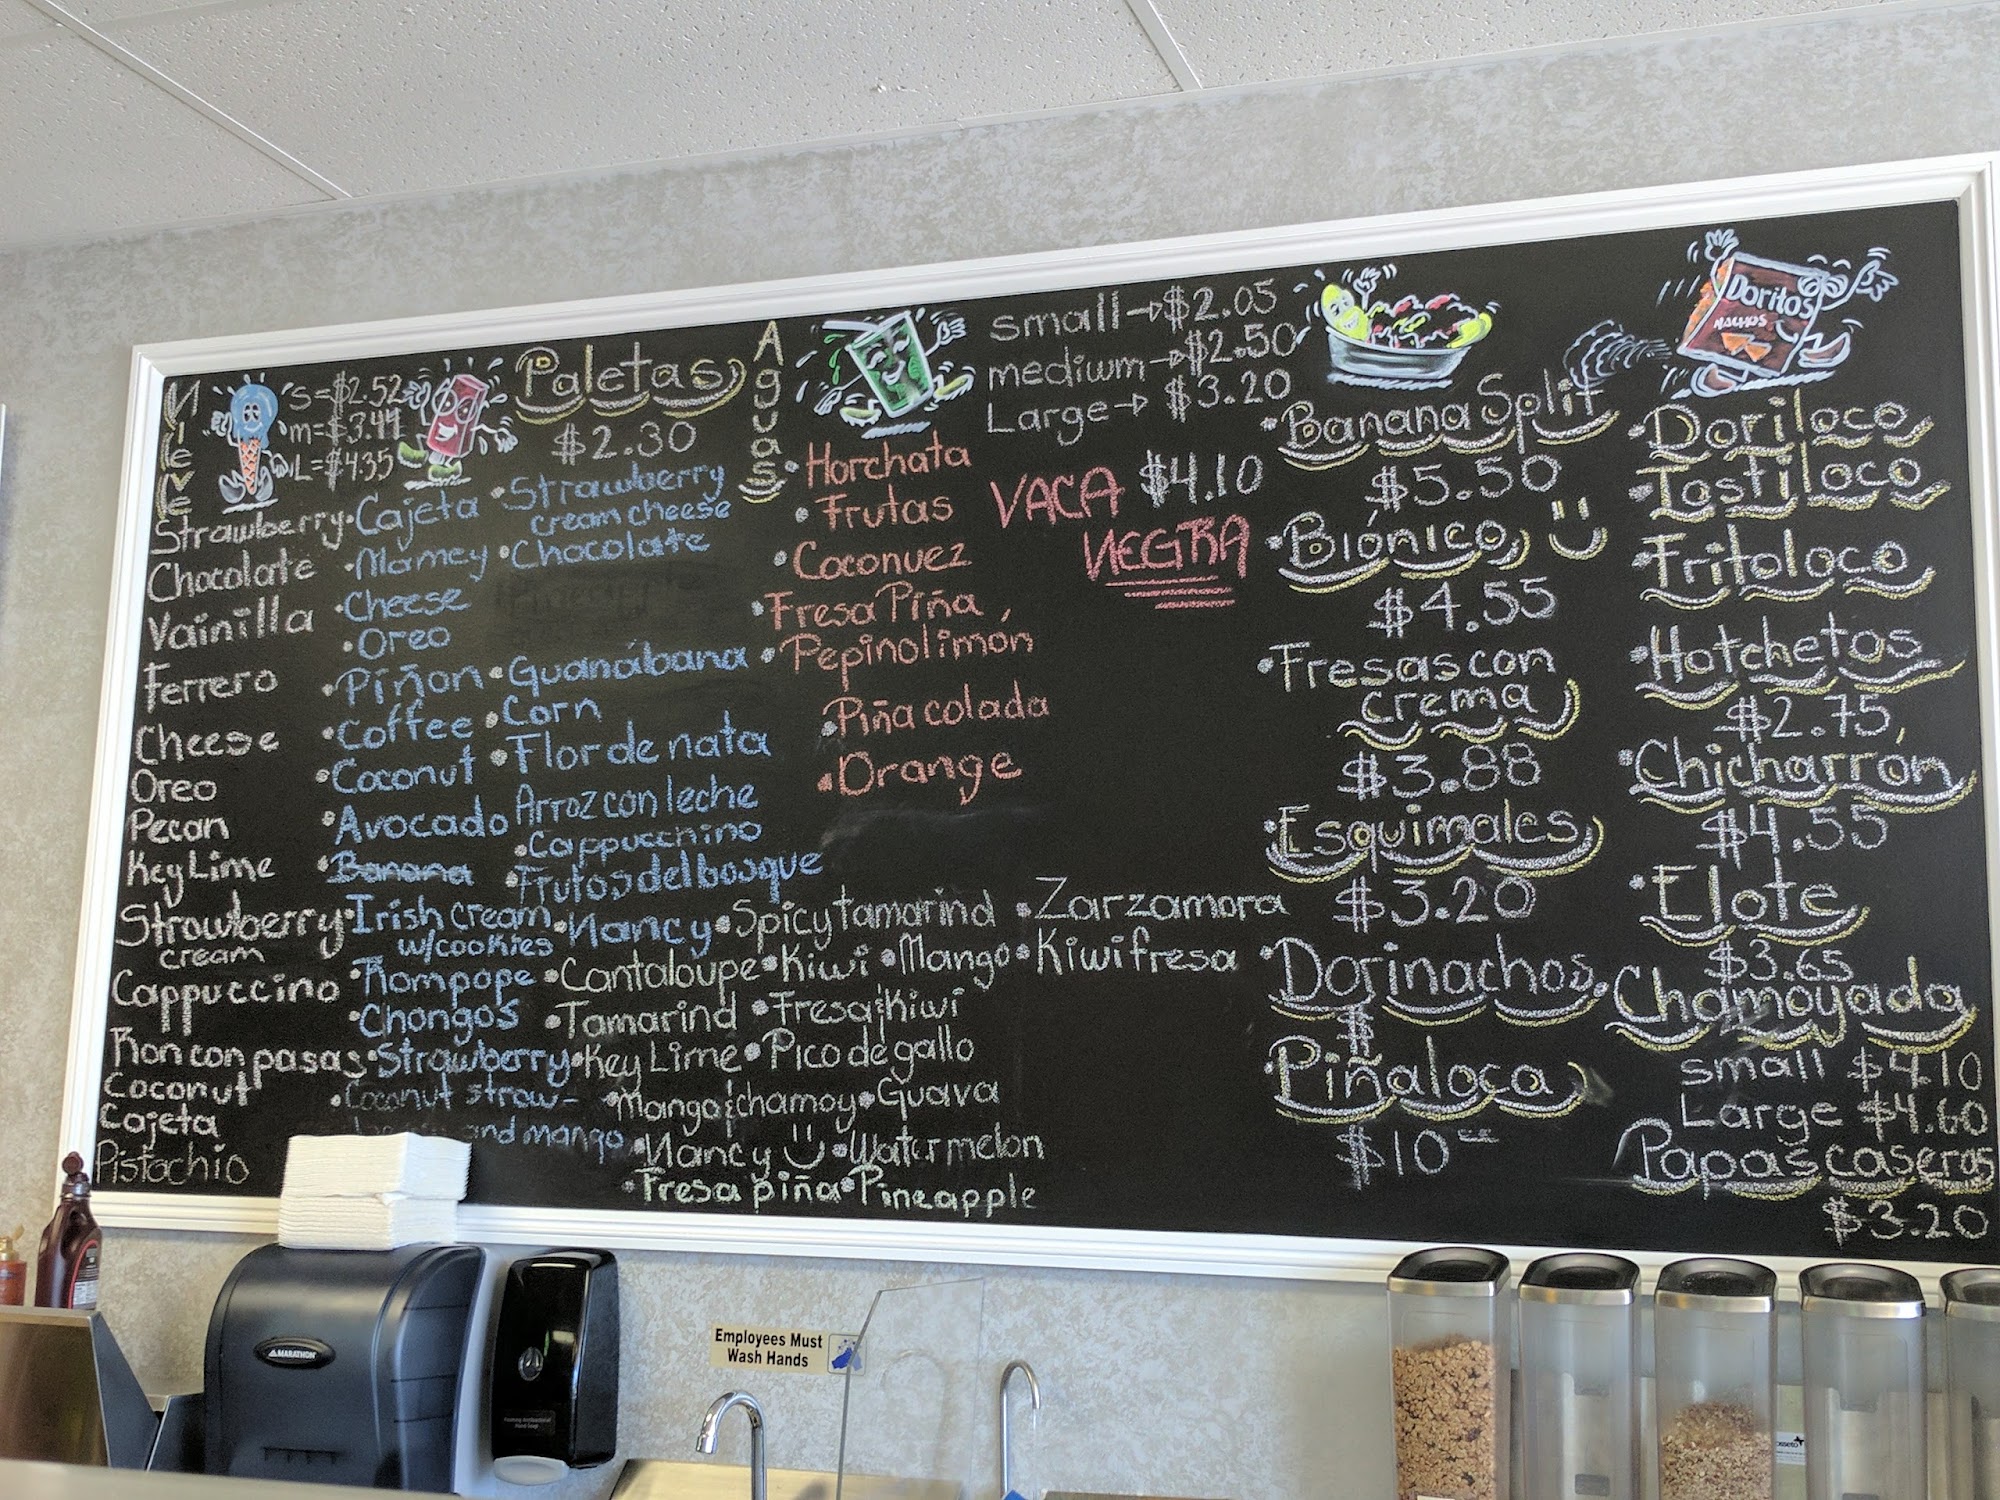 Nieve
S=$2.52
m=$3.44
L=$4.35
Strawberry
Chocolate
Vainilla
Ferrero
Cheese
Oreo
Pecan
Key Lime
Strawberry
cream
Cappuccino
Ron con pasas
Coconut
Cajeta
Pistachio
Paletas
$2.30
•Cajeta
•Mamey
•Cheese
•Oreo
•Piñon
•Coffee
•Coconut
•Avocado
•Banana
•Irish cream
w/cookies
•Rompope
•Chongos
•Strawberry
•Coconut straw-
and mango
•Strawberry
cream cheese
•Chocolate
•Guanábana
•Corn
•Flor de nata
Arroz con leche
•Cappucchino
•Frutos del bosque
•Nancy
•Cantaloupe
•Tamarind
•Key Lime
•Mango & chamoy
•Nancy
•Fresa piña
•Spicy tamarind
•Kiwi
•Mango
•Fresa & Kiwi
•Pico de gallo
•Guava
•Watermelon
•Pineapple
•Zarzamora
•Kiwi fresa
Aguas
small→$2.05
medium→$2.50
Large→$3.20
•Horchata
•Frutas
•Coconuez
•Fresa Piña
•Pepino limón
•Piña colada
•Orange
VACA $4.10
NEGRA
•Banana Split
$5.50
•Biónico
$4.55
•Fresas con
crema
$3.88
•Esquimales
$3.20
•Dorinachos
$
•Piñaloca
$10
Doritos
NACHOS
•Doriloco
•Tostiloco
•Fritoloco
•Hotchetos
$2.75
•Chicharrón
$4.55
•Elote
$3.65
•Chamoyada
small $4.10
Large $4.60
Papas caseras
$3.20
MARATHON
Employees Must
Wash Hands